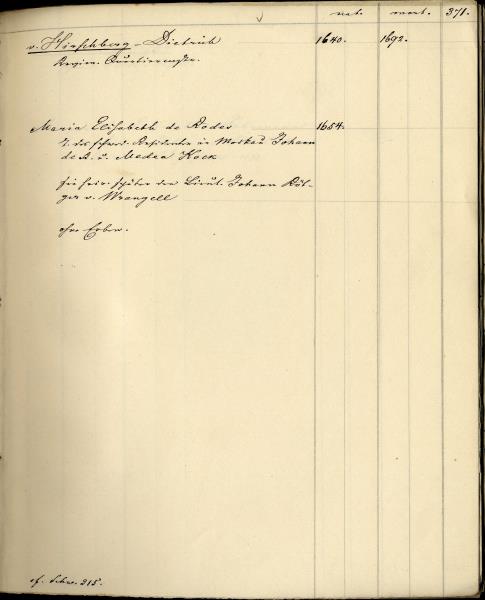 nat. mort. 371.
v. Hirschberg - Dietrich 1640. 1692.
Regim. Quartiermstr.
Maria Elisabeth de Rodes 1654.
T. des schwed. Residenten in Moskau Johann
de R. u. Medea Kock
sie heir. später den Lieut. Johann Röt-
ger v. Wrangell
ohne Erben.
cf. Schw. 315.